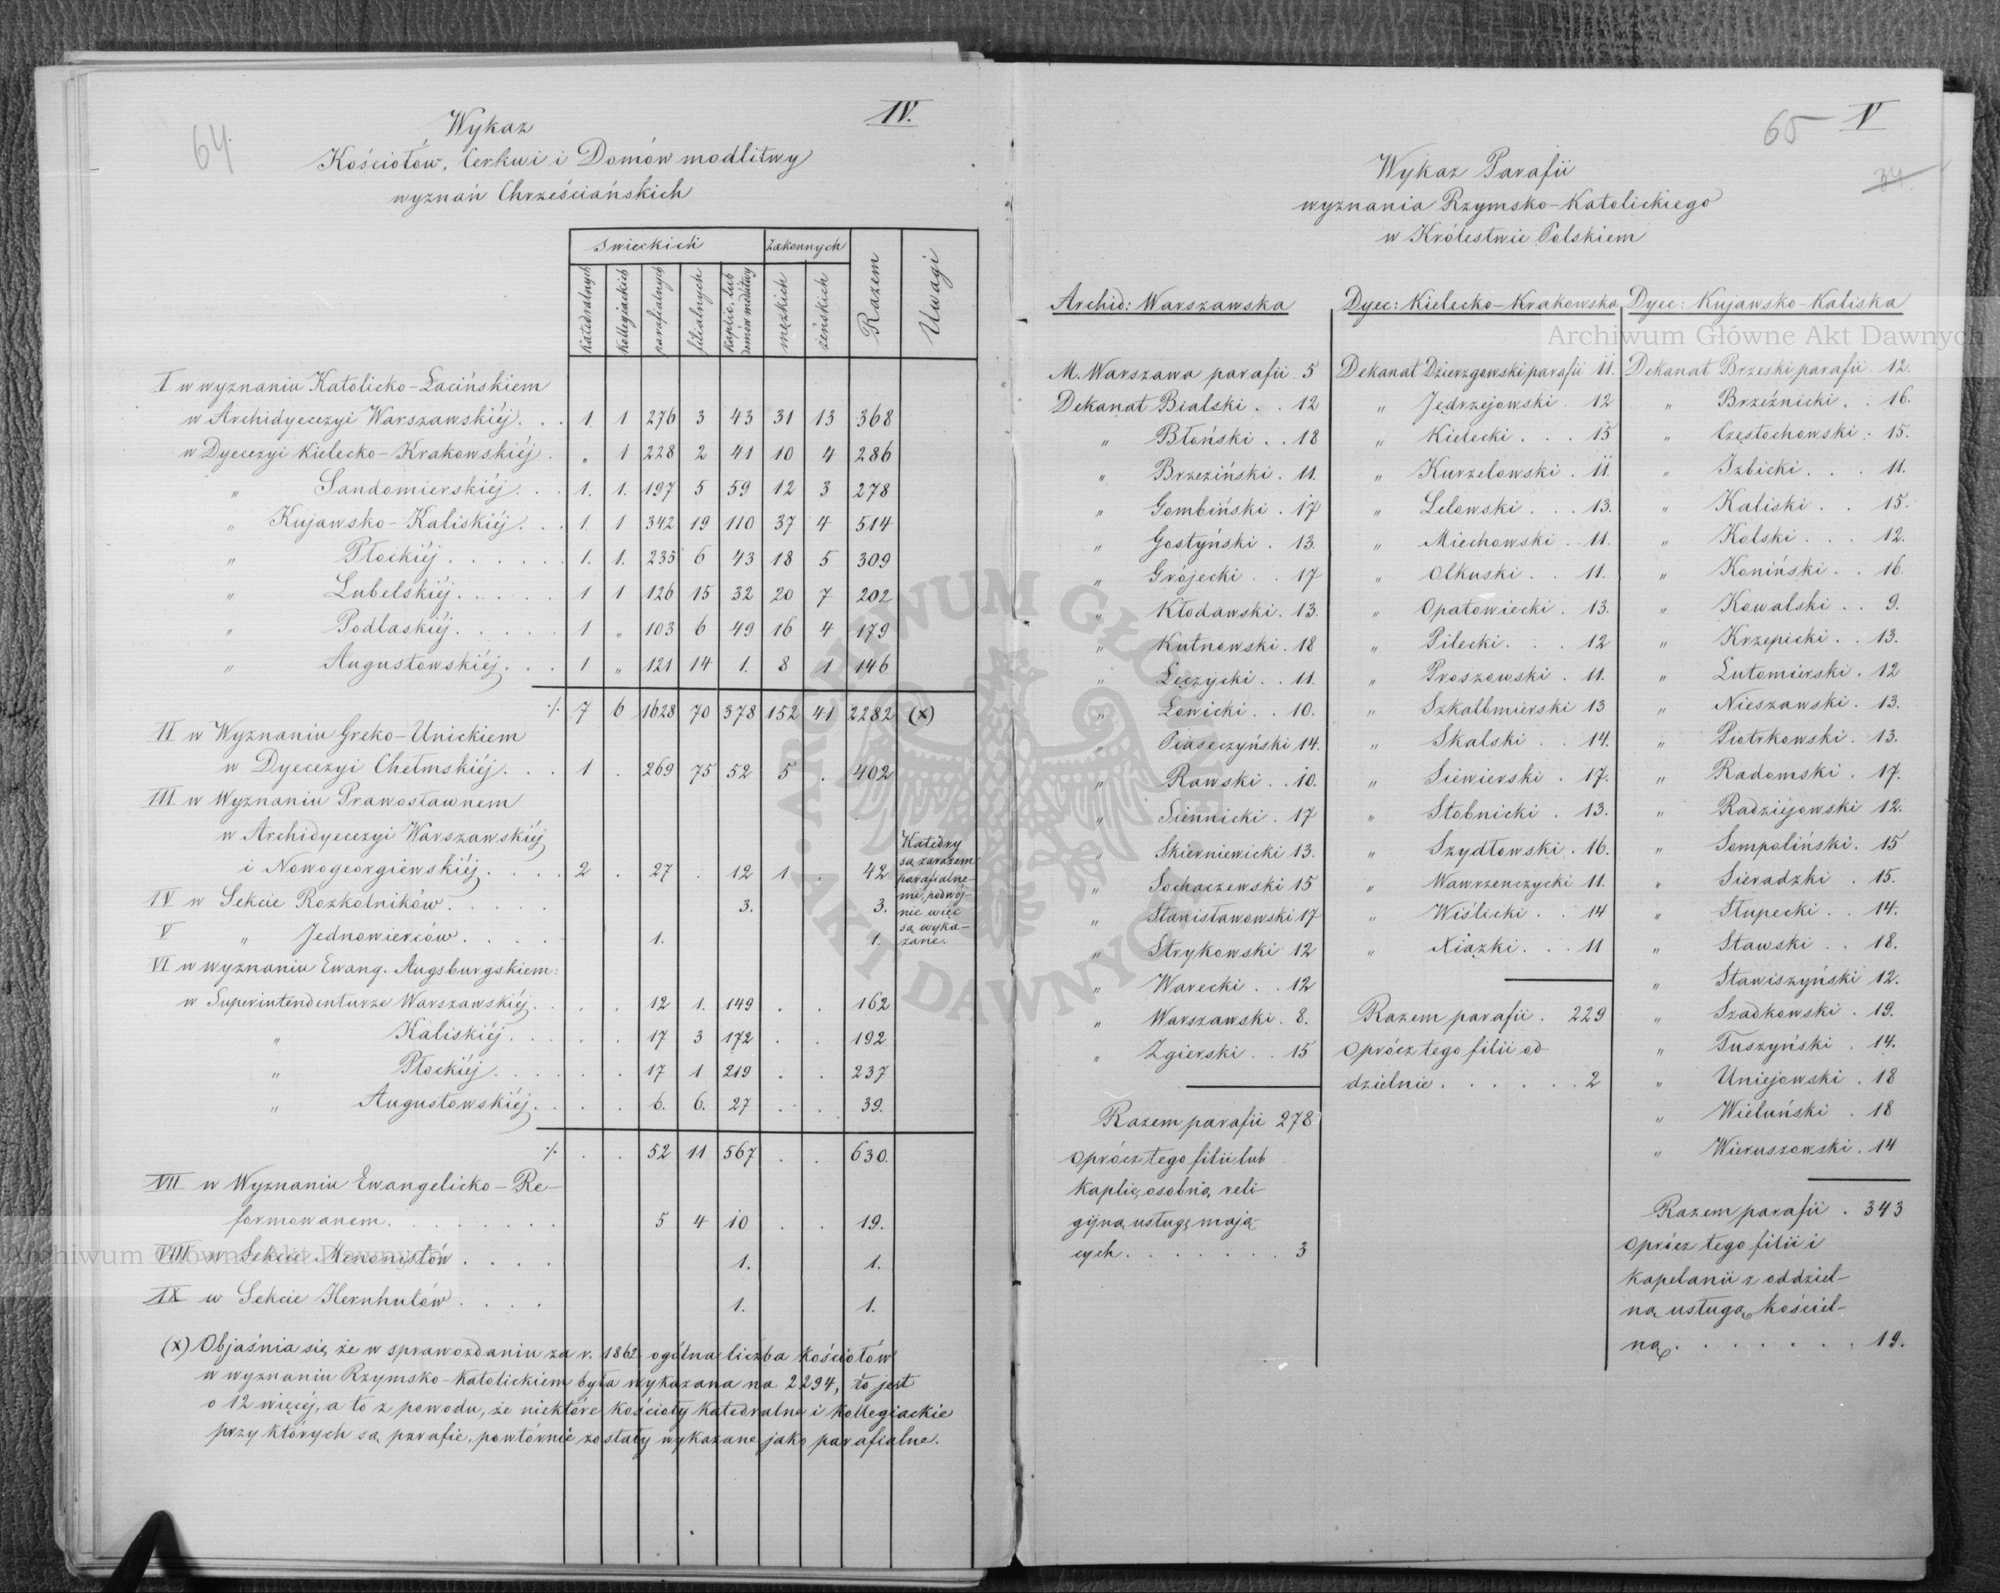 64.
IV.
Wykaz
Kościołów, Cerkwi i Domów modlitwy
wyznań Chrześciańskich
Swieckich Zakonnych Razem Uwagi
Katedralnych Kollegiackich parafialnych filialnych Kaplic, lub domów modlitwy męzkich żeńskich
I w wyznaniu Katolicko-Łacińskiem
w Archidyecezyi Warszawskiéj . . 1. 1 276 3 43 31 13 368
w Dyecezyi Kielecko-Krakowskiéj . „ 1 228 2 41 10 4 286
„ Sandomierskiéj . . 1. 1. 197 5 59 12 3 278
„ Kujawsko-Kaliskiéj . . 1. 1 342 19 110 37 4 514
„ Płockiéj . . . . . . 1. 1. 235 6 43 18 5 309
„ Lubelskiéj . . . . . 1 1 126 15 32 20 7 202
„ Podlaskiéj . . . . . 1 „ 103 6 49 16 4 179
„ Augustowskiéj . . . 1 „ 121 14 1. 8 1 146
·/. 7 6 1628 70 378 152 41 2282 (x)
II w Wyznaniu Greko-Unickiem
w Dyecezyi Chełmskiéj . . . 1 . 269 75 52 5 . 402
III w Wyznaniu Prawosławnem
w Archidyecezyi Warszawskiéj
i Nowogeorgiewskiéj . . . . 2 . 27 . 12 1 . 42
Katedry
są zarazem
parafialne-
mi, podwój-
nie więc
są wyka-
zane.
IV w Sekcie Rozkolników . . . . . 3. 3.
V „ Jednowierców . . . . 1. 1.
VI w wyznaniu Ewang. Augsburgskiem:
w Superintendenturze Warszawskiéj . . . 12 1. 149 . . 162
„ Kaliskiéj . . . . . 17 3 172 . . 192
„ Płockiéj . . . . . . 17 1 219 . . 237
„ Augustowskiéj . . . . 6. 6. 27 . . 39.
·/. . . 52 11 567 . . 630.
VII w Wyznaniu Ewangelicko-Re-
formowanem . . . . . . . 5 4 10 . . 19.
VIII w Sekcie Menonistów . . . . 1. 1.
IX w Sekcie Hernhutów . . . . 1. 1.
(x) Objaśnia się, że w sprawozdaniu za r. 1862 ogólna liczba kościołów
w wyznaniu Rzymsko-Katolickiem była wykazana na 2294, to jest
o 12 więcéj, a to z powodu, że niektóre kościoły katedralne i kollegiackie
przy których są parafie, powtórnie zostały wykazane jako parafialne.
65
V
34.
Wykaz Parafii
wyznania Rzymsko-Katolickiego
w Królestwie Polskiem
Archid: Warszawska
M. Warszawa parafii 5
Dekanat Bialski . . 12
„ Błoński . . 18
„ Brzeziński . 11.
„ Gombiński . 17
„ Gostyński . 13.
„ Grójecki . . 17
„ Kłodawski . 13.
„ Kutnowski . 18
„ Łęczycki . . 11.
„ Łowicki . . 10.
„ Piaseczyński 14.
„ Rawski . . 10.
„ Siennicki . 17
„ Skierniewicki 13.
„ Sochaczewski 15
„ Stanisławowski 17
„ Strykowski 12
„ Warecki . . 12
„ Warszawski . 8.
„ Zgierski . . 15
Razem parafii 278
oprócz tego filii lub
kaplic, osobną reli-
gijną usługę mają-
cych . . . . . . . 3
Dyec: Kielecko-Krakowska
Dekanat Dzierzgowski parafii 11.
„ Jędrzejowski . 12
„ Kielecki . . . 15
„ Kurzelowski . 11
„ Lelowski . . . 13.
„ Miechowski . . 11.
„ Olkuski . . 11.
„ Opatowiecki . 13.
„ Pilecki . . . 12
„ Proszowski . . 11.
„ Szkalbmierski 13
„ Skalski . . 14.
„ Siewierski . 17.
„ Stobnicki . 13.
„ Szydłowski . 16.
„ Wawrzenczycki 11.
„ Wiślicki . . 14
„ Xiązki . . . 11
Razem parafii . 229
oprócz tego filii od-
dzielnie . . . . . . 2
Dyec: Kujawsko-Kaliska
Dekanat Brzeski parafii . 12.
„ Brzeźnicki . . 16.
„ Częstochowski . 15.
„ Izbicki . . . 11.
„ Kaliski . . 15.
„ Kolski . . . 12.
„ Koniński . . 16.
„ Kowalski . . 9.
„ Krzepicki . . 13.
„ Lutomierski . 12
„ Nieszawski . 13.
„ Piotrkowski . 13.
„ Radomski . 17.
„ Radziejowski 12.
„ Sompoliński . 15
„ Sieradzki . 15.
„ Słupecki . . 14.
„ Stawski . . 18.
„ Stawiszyński 12.
„ Szadkowski . 19.
„ Tuszyński . 14.
„ Uniejowski . 18
„ Wieluński . 18
„ Wieruszowski . 14
Razem parafii . 343
oprócz tego filii i
kapelanii z oddziel-
ną usługą kościel-
ną . . . . . . . . 19.
Archiwum Główne Akt Dawnych
Archiwum Główne Akt Dawnych
ARCHIWUM GŁÓWNE · AKT DAWNYCH ·